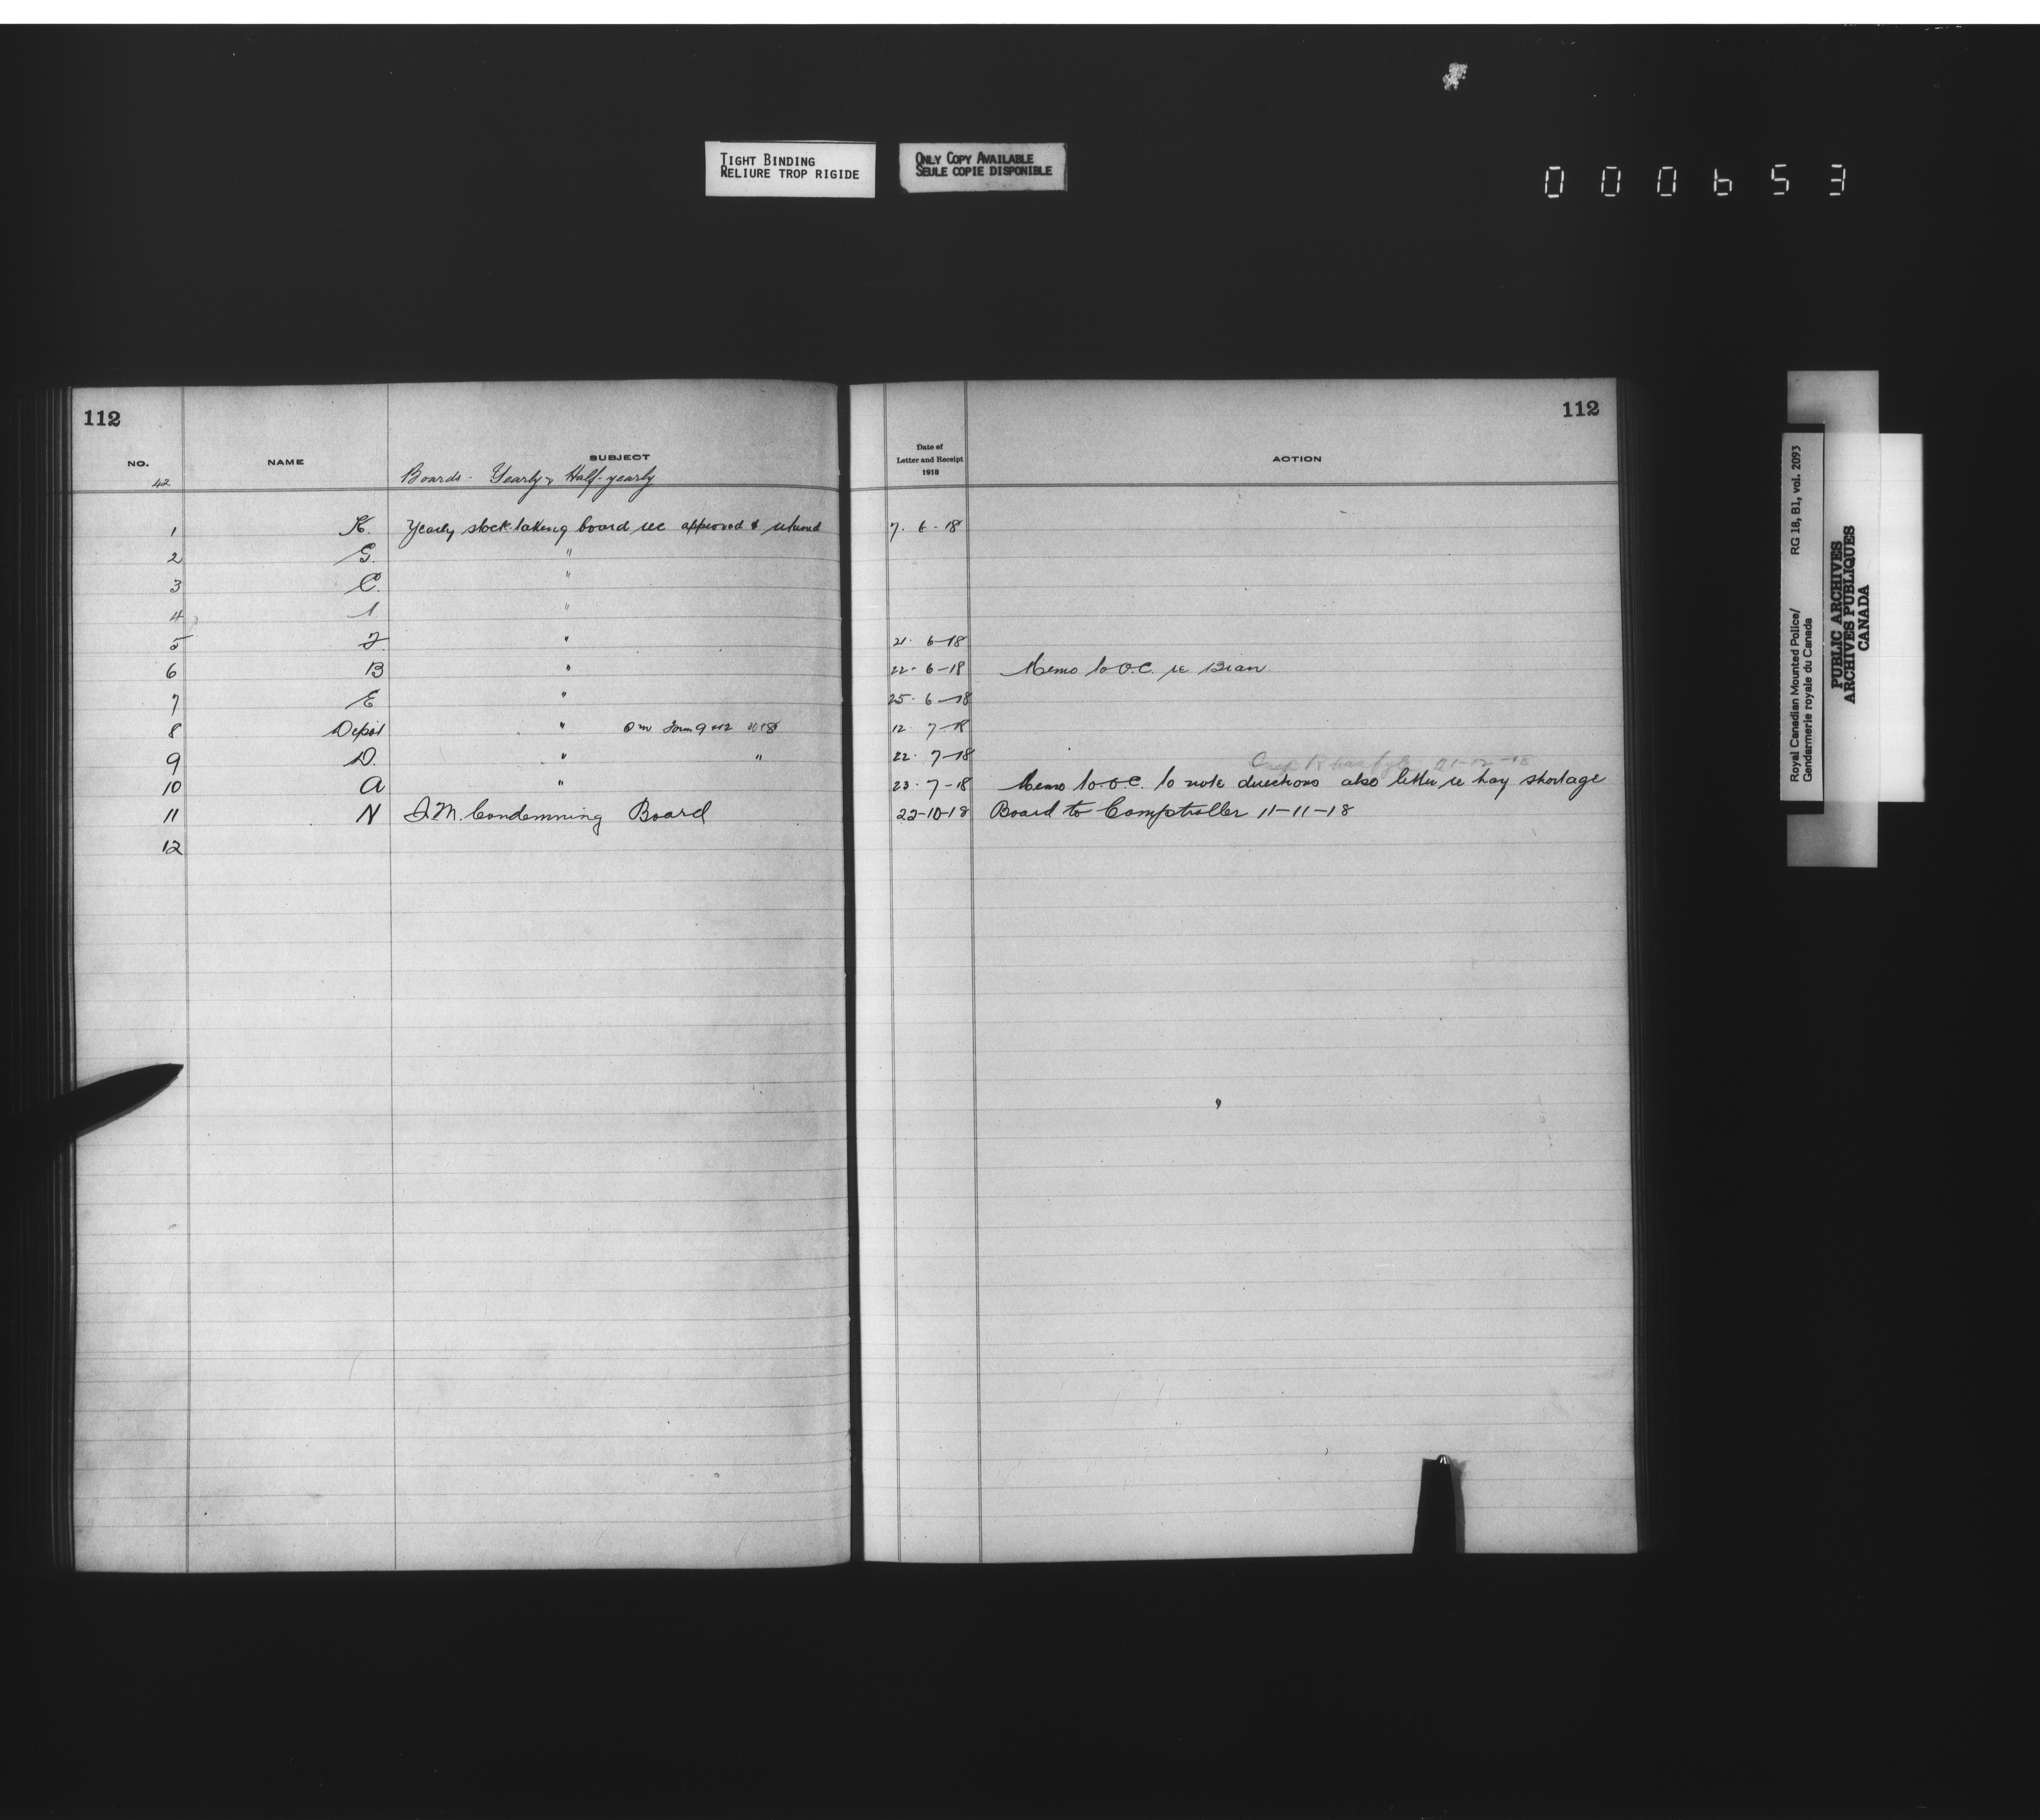 TIGHT BINDING
RELIURE TROP RIGIDE
ONLY COPY AVAILABLE
SEULE COPIE DISPONIBLE
000653
112
NO. NAME SUBJECT
42 Boards - Yearly & Half-yearly
1 K. Yearly stock-taking board rec approved & returned
2 G. "
3 C. "
4 "
5 "
6 B "
7 E "
8 Depot "
9 D. " "
10 A "
11 N Q.M. Condemning Board
12
112
Date of
Letter and Receipt
1918
ACTION
7. 6 - 18
21. 6-18
22. 6-18 Memo to O.C. re Bran
25. 6-18
12. 7-18
22. 7-18 21-12-18
23. 7-18 Memo to O.C. to note directions also letter re hay shortage
22-10-18 Board to Comptroller 11-11-18
Royal Canadian Mounted Police/ RG 18, B1, vol. 2093
Gendarmerie royale du Canada
PUBLIC ARCHIVES
ARCHIVES PUBLIQUES
CANADA